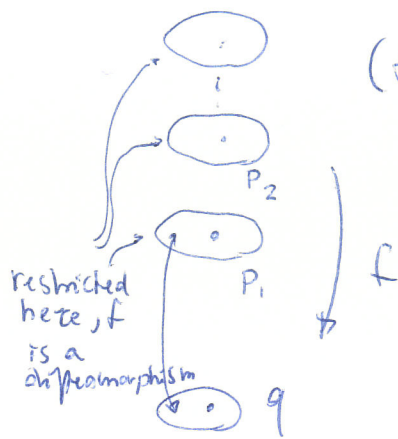 (
P₂
P₁
f
restricted
here, f
is a
diffeomorphism
q